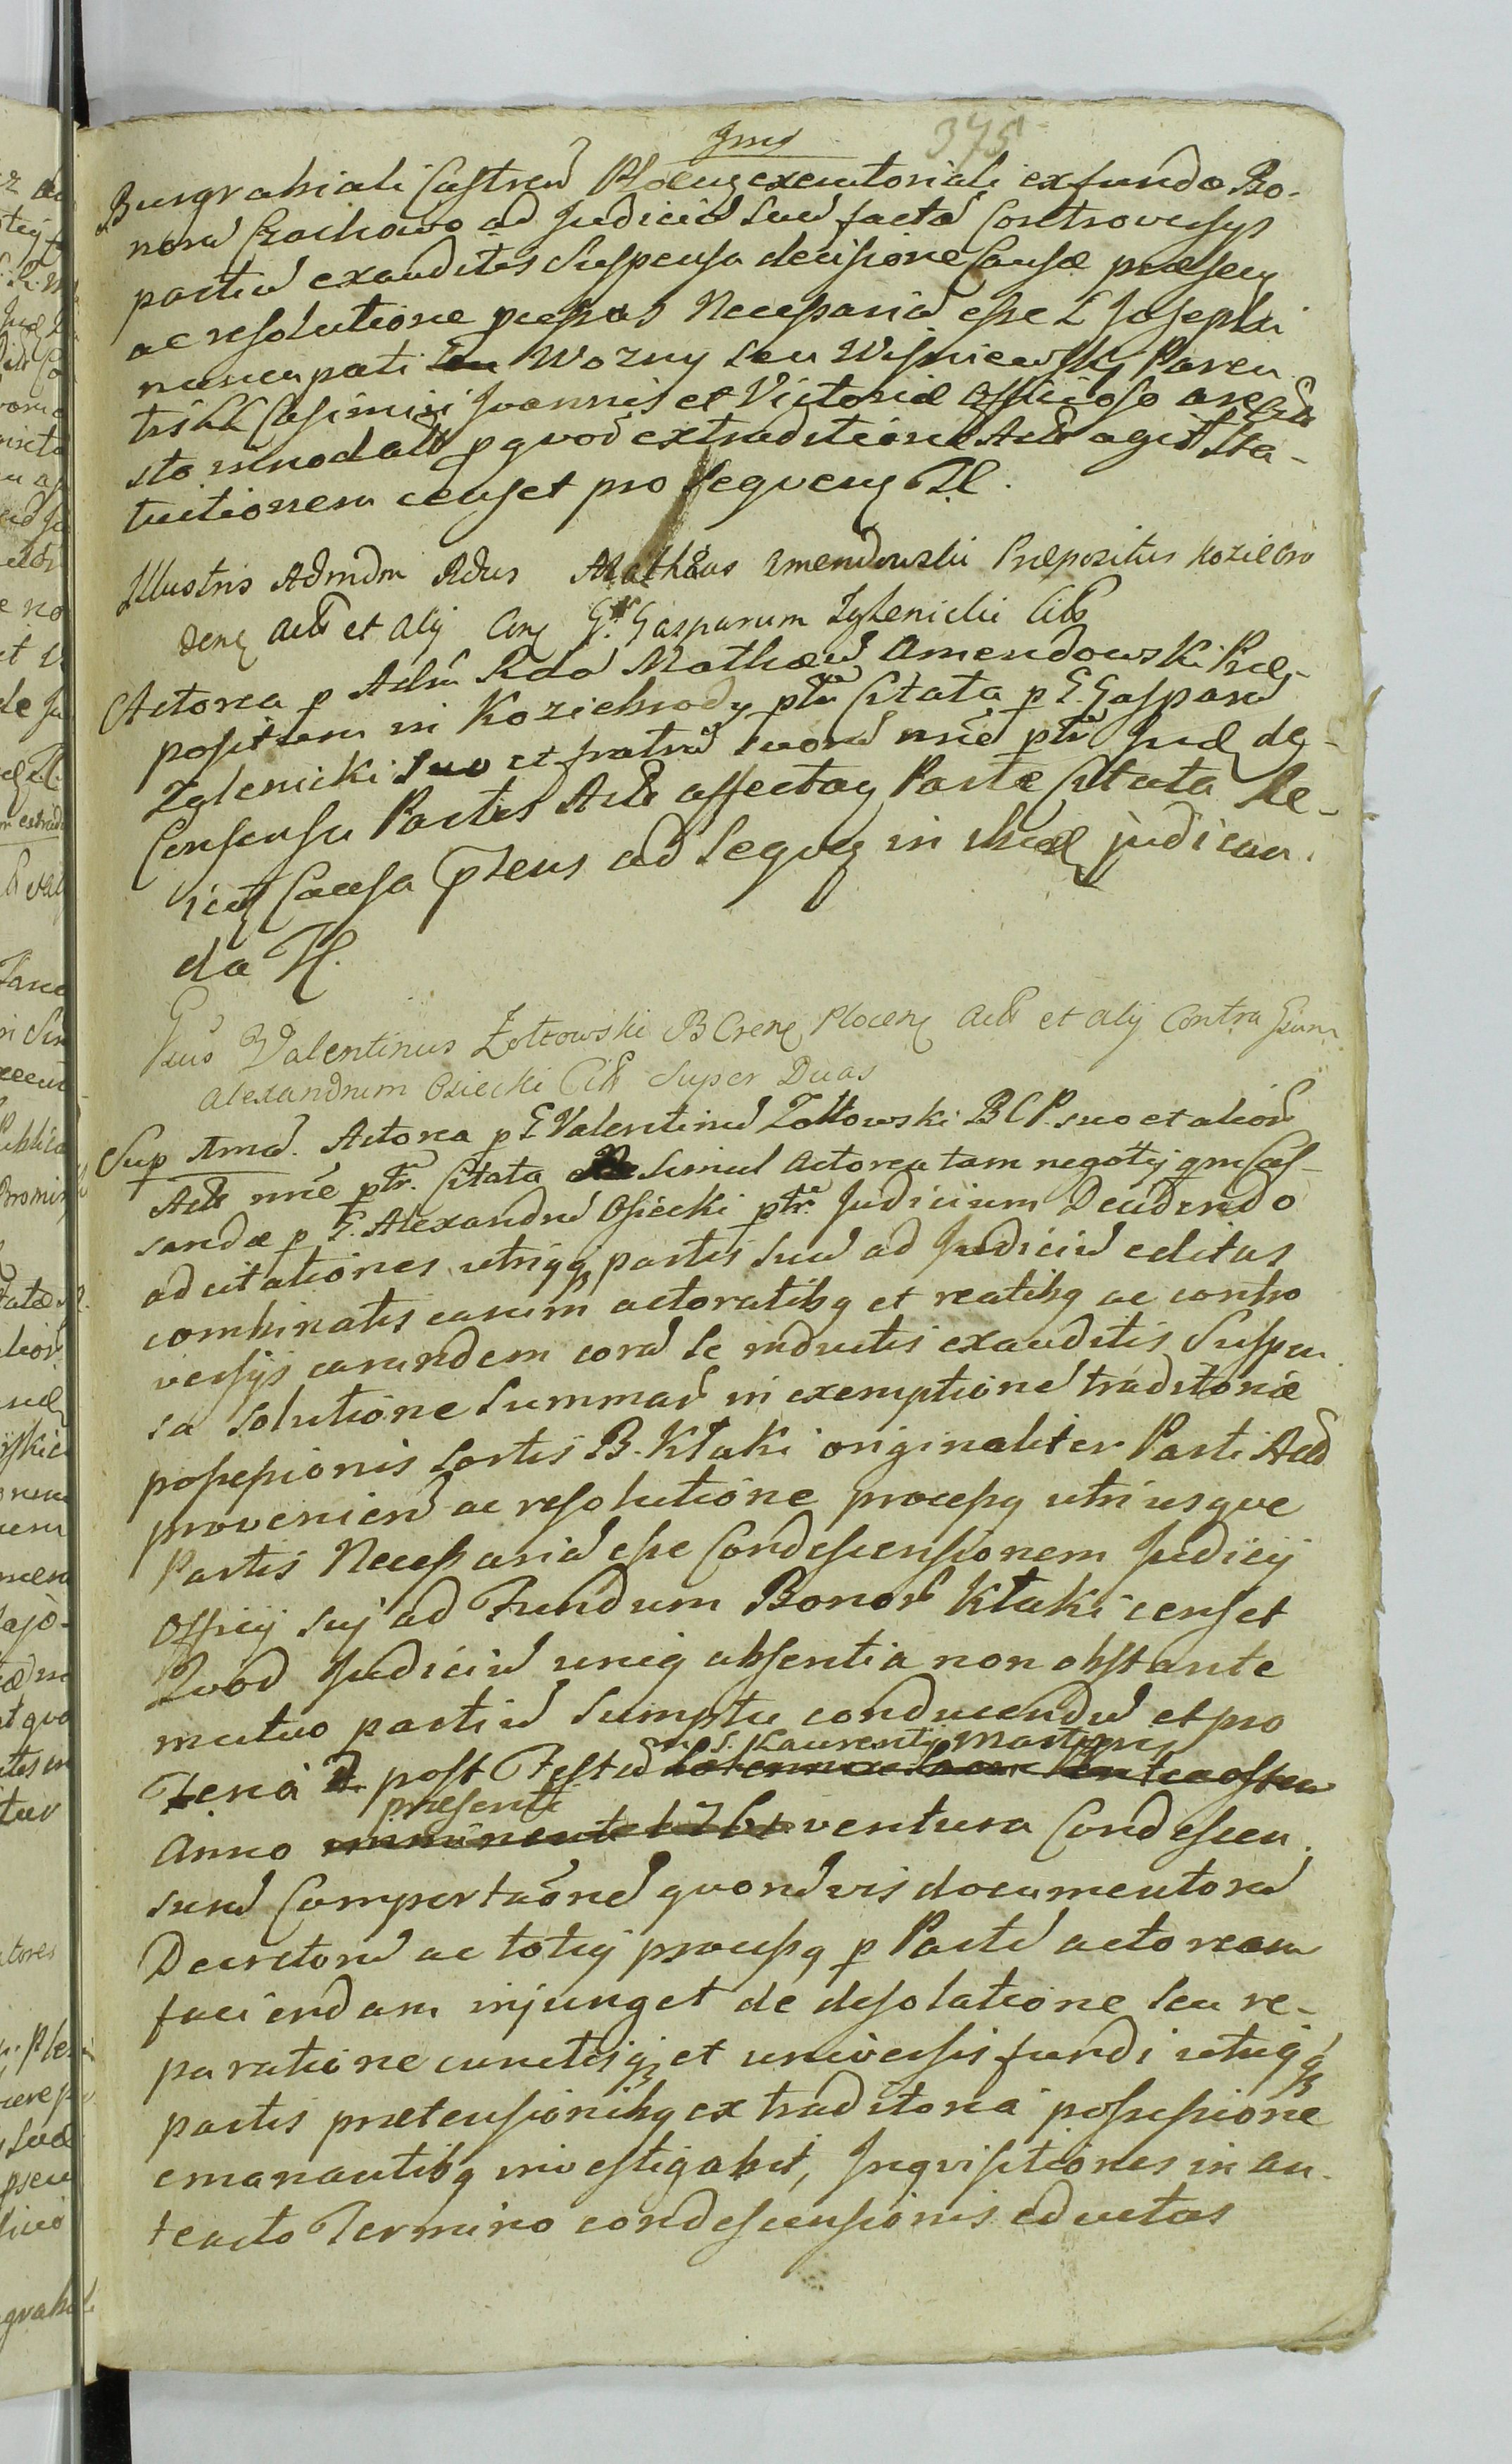 375
Burgrabiali Castren Plocen executoriali ex fundo Bo-
norū Czachowo ad Judiciū Suū facta Controversys
partiū exauditis Suspensa decisione Causæ præsen
ac resolutione processus Necessariā esse L Josephi
nuncupati Wozny seu Wisniewski Paren
tis LL Casimiri Joannis et Victoriæ Officioso are
sto innodati p quod extraditione Act agit Sta-
tuitionem censet pro sequen Tl.
Illustris Admdm Rdus Mathæus Amendowski Præpositus Koziebro
denę Act et alij Con G. Gasparum Zglenicki Cit
Actorea p Adm Rdū Mathæū Amendowski Præ-
positum in Koziebrody ptr Citata p G. Gasparū
Zglenicki suo et fratrū suorū nrē ptr Jud de
Consensu Partis Act affectaę Parte Citata Re-
icit Causa pteus ad sequę in judican
da Tl.
Gnus Valentinus Zołtowski B Crenę Plocenę Act et alij Contra Gnum
Alexandrum Osiecki Cit Super Duas
Sup 1mā. Actorea p G Valentinū Zołtowski B C P. suo et aliorū
Act nrē ptr. Citata Simul Actorea tam negotij qm Cas-
sandæ p G. Alexandrū Osiecki ptr. Judicium Decidendo
ad citationes utriqq partis Suū ad Judiciū editas
combinatis earum actoratibq et reatibq ac contro
versijs earundem corā Se inductis exauditis Suspen
sa solutione Summarū in exemptionē traditoriæ
possessionis Sortis B. Kłaki originaliter Parti Act
provenien ac resolutione processq utriusque
Partis Necessariā esse Condescensionem Judicij
Officij Sui ad Fundum Bonorū Kłaki censet
Quod Judiciū uniq absentia non obstante
mutuo partiū Sumptu conducendū et pro
Feria 2 post Festū S. Laurentij Martyris
præsenti
Anno ventura Condescen
surū Comportaōnē quorūvis documentorū
Decretorū ac totiq processq p Partē actoream
faciendam injunget de desolatione seu re-
paratione cunctisq et universis fundi utriqq
partis prætensionibq ex traditoria possessione
emanantibq investigabit, Inquisitiones in an-
teacto Termino condescensionis eductas